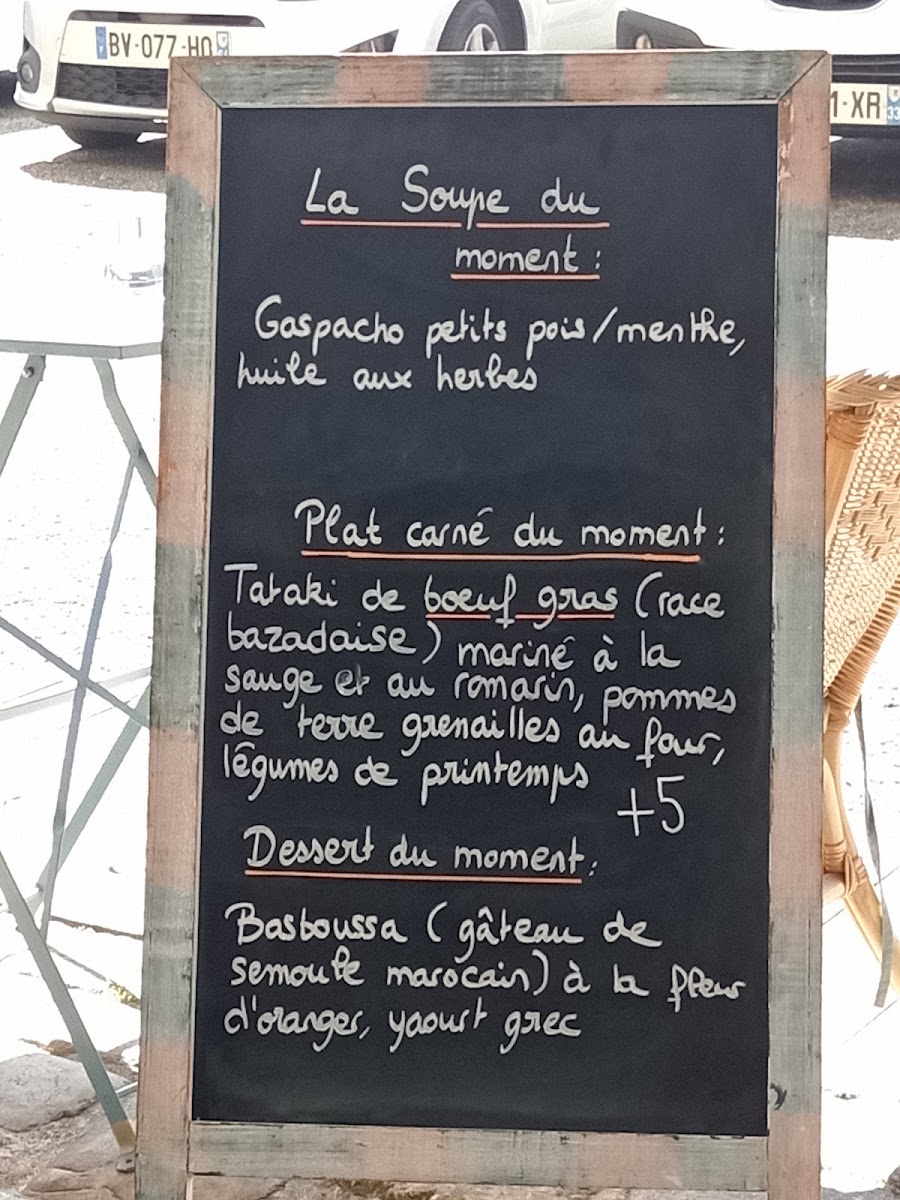 BV-077-HQ
1-XR
33
La Soupe du
moment :
Gaspacho petits pois/menthe,
huile aux herbes
Plat carné du moment :
Tataki de boeuf gras (race
bazadaise) mariné à la
sauge et au romarin, pommes
de terre grenailles au four,
légumes de printemps
+5
Dessert du moment :
Basboussa (gâteau de
semoule marocain) à la fleur
d'oranger, yaourt grec